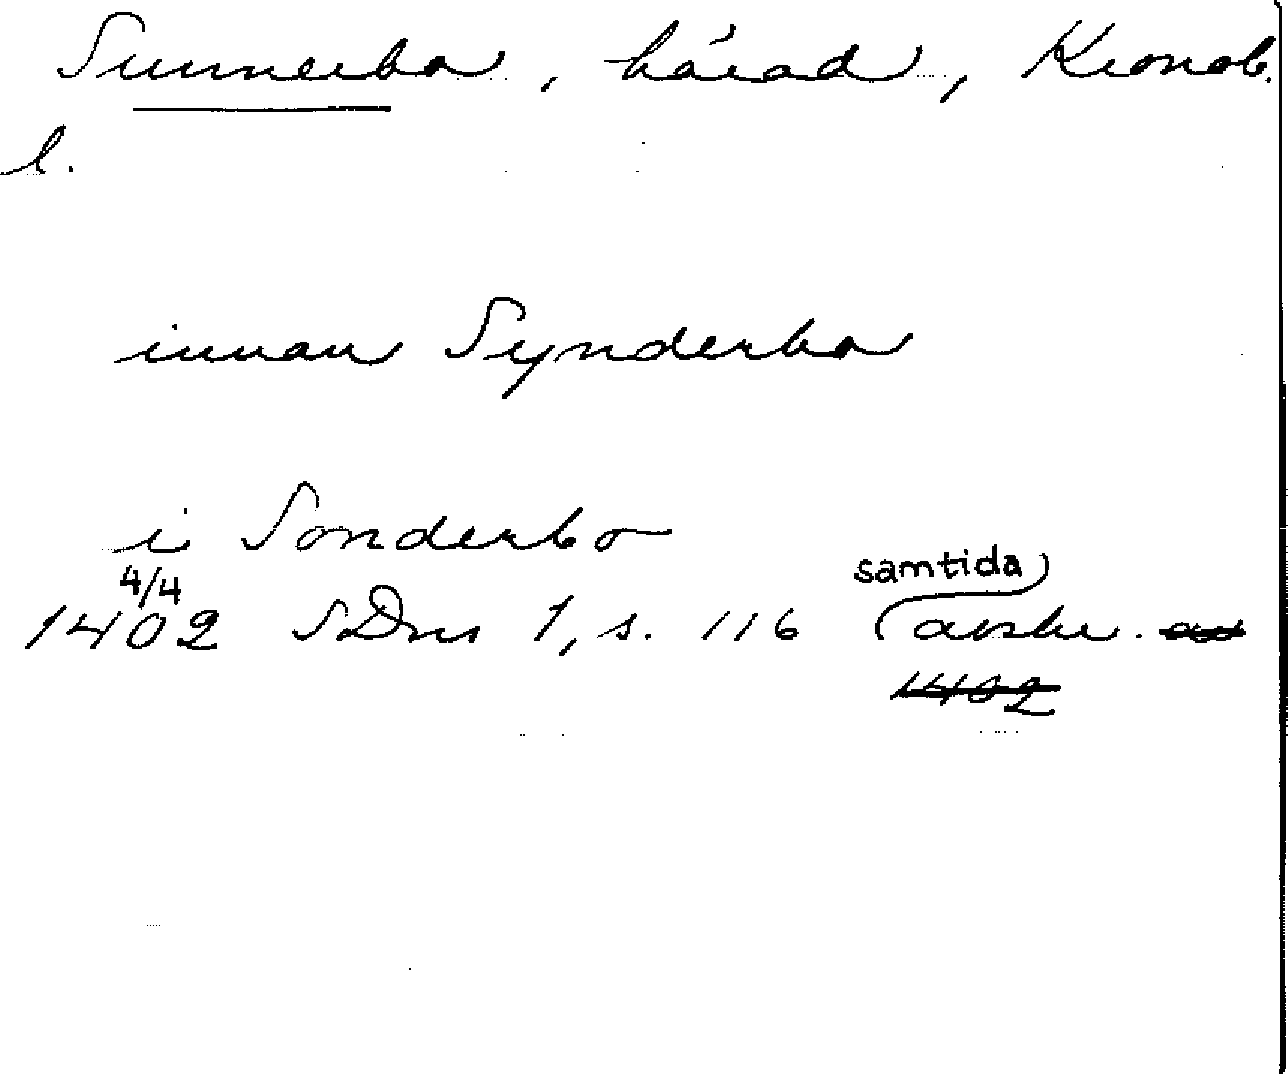 Sunnerbo, härad, Kronob.
l.
innan Synderbo
i Sonderbo
4/4 samtida
1402 SDns 1, s. 116 (avskr. av
1402